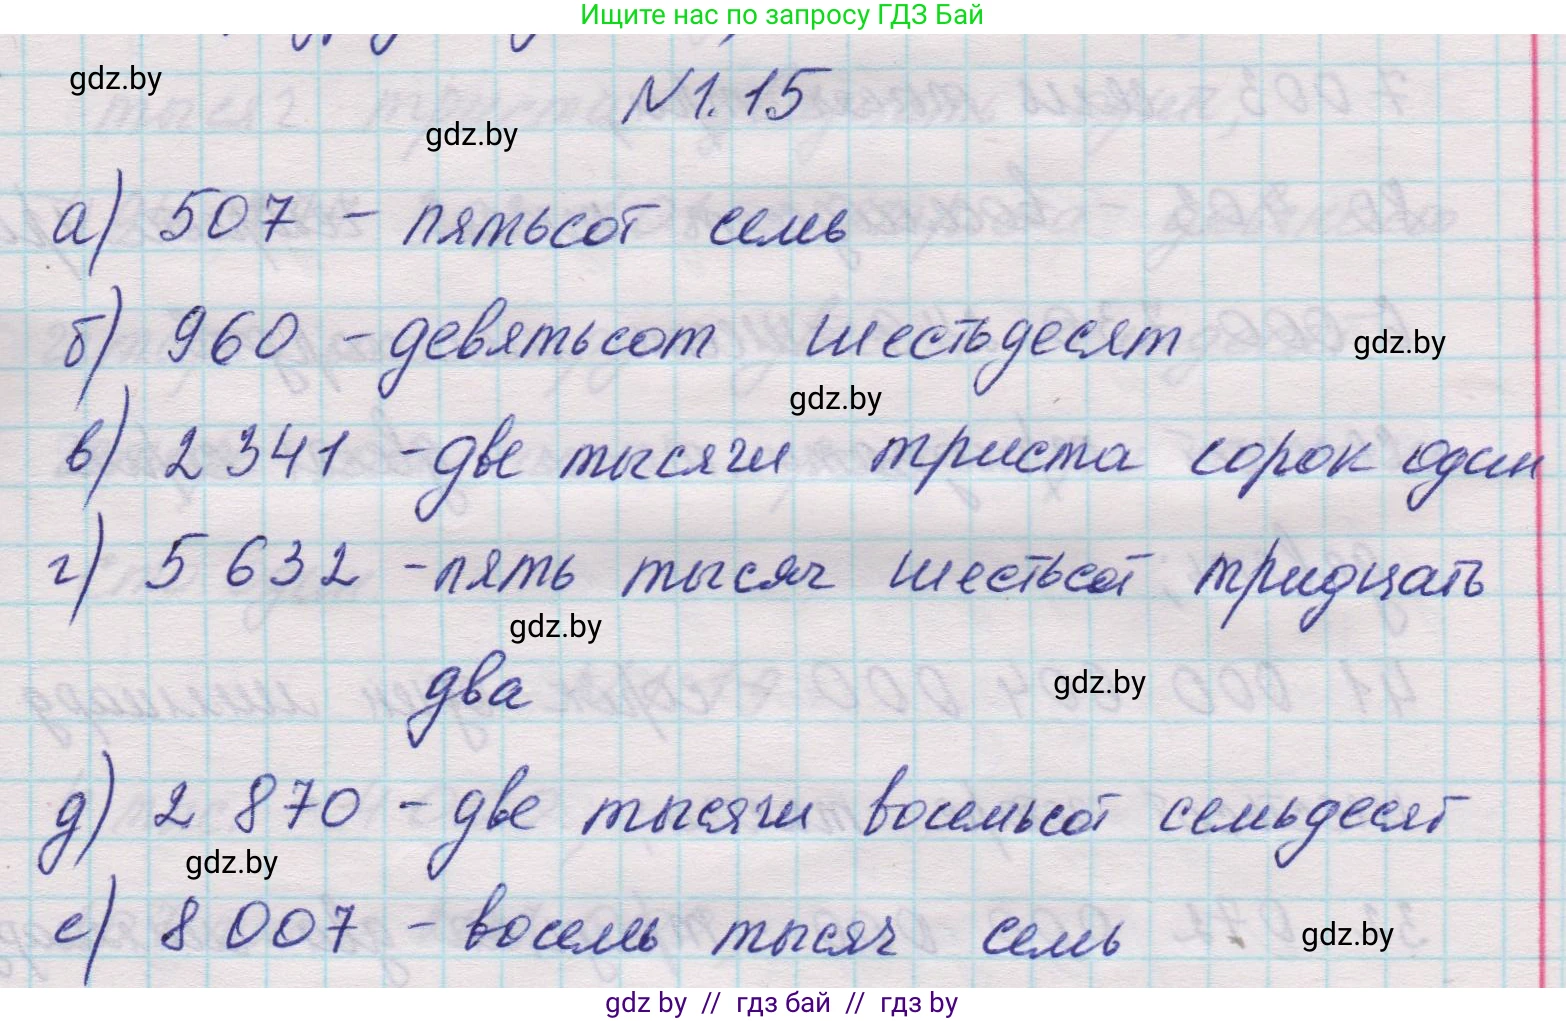 Ищите нас по запросу ГДЗ Бай
gdz.by
№1.15
gdz.by
а) 507 - пятьсот семь
б) 960 - девятьсот шестьдесят
gdz.by
gdz.by
в) 2 341 - две тысячи триста сорок один
г) 5 632 - пять тысяч шестьсот тридцать
gdz.by
два
gdz.by
д) 2 870 - две тысячи восемьсот семьдесят
gdz.by
е) 8 007 - восемь тысяч семь
gdz.by
gdz by // гдз бай // гдз by